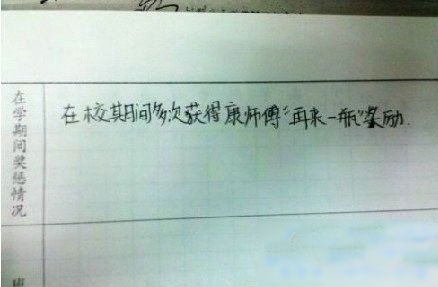 在学期间奖惩情况
在校其间多次获得康师傅“再来一瓶”奖励.